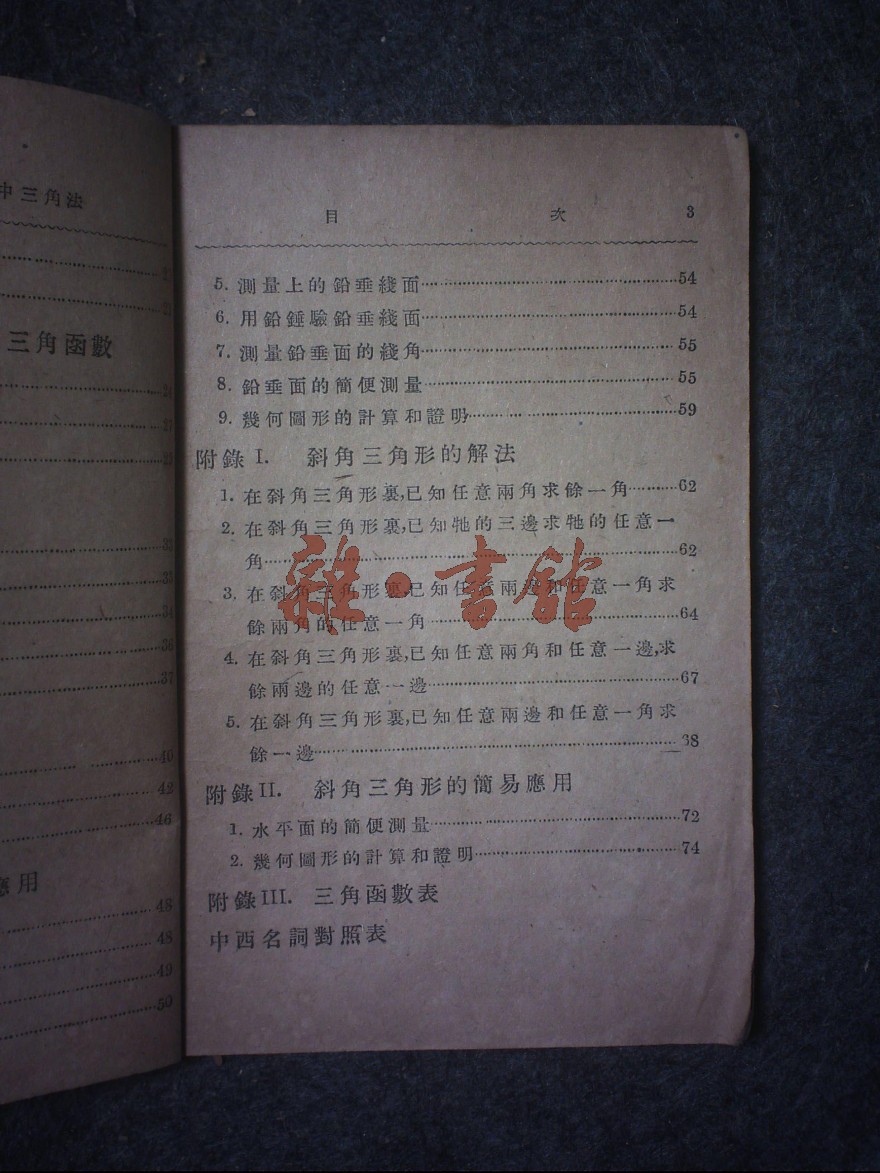 中三角法
三角函數
24
27
32
33
34
36
37
40
42
46
應用
48
48
49
50
目 次 3
5. 測量上的鉛垂綫面 54
6. 用鉛錘驗鉛垂綫面 54
7. 測量鉛垂面的綫角 55
8. 鉛垂面的簡便測量 55
9. 幾何圖形的計算和證明 59
附錄 I. 斜角三角形的解法
1. 在斜角三角形裏,已知任意兩角求餘一角 62
2. 在斜角三角形裏,已知牠的三邊求牠的任意一
角 62
3. 在斜角三角形裏,已知任意兩邊和任意一角求
餘兩角的任意一角 64
4. 在斜角三角形裏,已知任意兩角和任意一邊,求
餘兩邊的任意一邊 67
5. 在斜角三角形裏,已知任意兩邊和任意一角求
餘一邊 68
附錄 II. 斜角三角形的簡易應用
1. 水平面的簡便測量 72
2. 幾何圖形的計算和證明 74
附錄 III. 三角函數表
中西名詞對照表
雜·書館